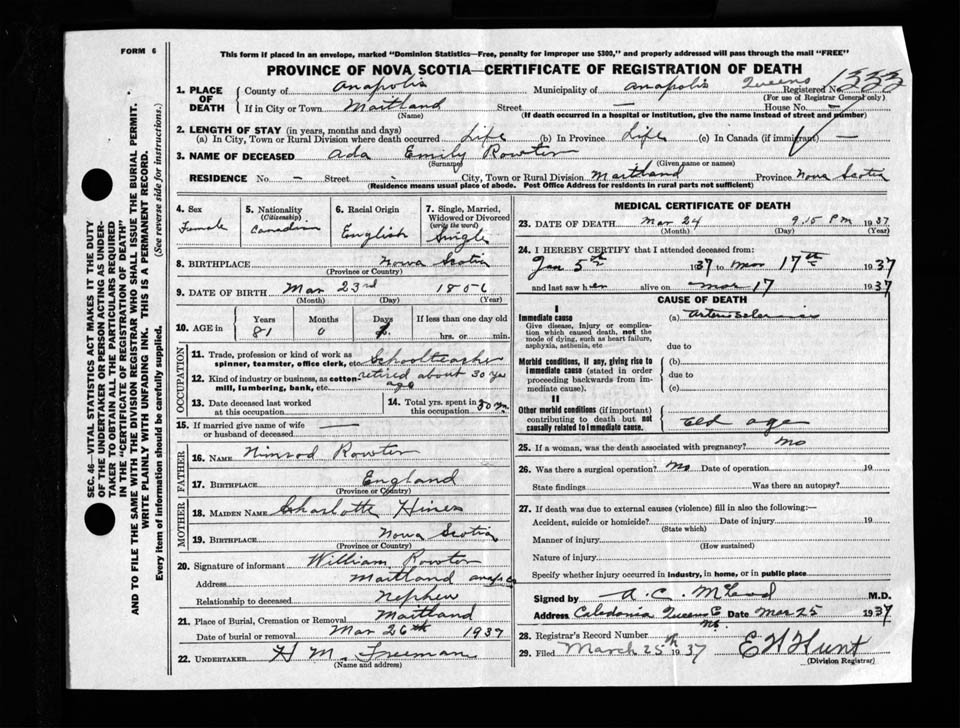 FORM 6
This form if placed in an envelope, marked "Dominion Statistics—Free, penalty for improper use $300," and properly addressed will pass through the mail "FREE"
PROVINCE OF NOVA SCOTIA—CERTIFICATE OF REGISTRATION OF DEATH
1. PLACE OF DEATH
County of Anapolis Municipality of Anapolis Queens Registered No. 1333
(For use of Registrar General only)
If in City or Town Maitland Street — House No. —
(Name) (If death occurred in a hospital or institution, give the name instead of street and number)
2. LENGTH OF STAY (in years, months and days)
(a) In City, Town or Rural Division where death occurred Life (b) In Province Life (c) In Canada (if immigrant) —
3. NAME OF DECEASED Ada Emily Rowter
(Surname) (Given name or names)
RESIDENCE No. - Street - City, Town or Rural Division Maitland Province Nova Scotia
(Residence means usual place of abode. Post Office Address for residents in rural parts not sufficient)
4. Sex Female
5. Nationality (Citizenship) Canadian
6. Racial Origin English
7. Single, Married, Widowed or Divorced (write the word) Single
8. BIRTHPLACE Nova Scotia
(Province or Country)
9. DATE OF BIRTH Mar 23rd 1856
(Month) (Day) (Year)
10. AGE in Years Months Days If less than one day old
81 0 hrs. or min.
OCCUPATION
11. Trade, profession or kind of work as spinner, teamster, office clerk, etc. Schoolteacher
12. Kind of industry or business, as cotton-mill, lumbering, bank, etc. retired about 30 yrs ago
13. Date deceased last worked at this occupation
14. Total yrs. spent in this occupation 30 yrs
15. If married give name of wife or husband of deceased —
FATHER
16. NAME Nimrod Rowter
17. BIRTHPLACE England
(Province or Country)
MOTHER
18. MAIDEN NAME Charlotte Hines
19. BIRTHPLACE Nova Scotia
(Province or Country)
20. Signature of informant William Rowter
Address Maitland Anap Co
Relationship to deceased nephew
21. Place of Burial, Cremation or Removal Maitland
Date of burial or removal Mar 26th 1937
22. UNDERTAKER H M. Freeman
(Name and address)
MEDICAL CERTIFICATE OF DEATH
23. DATE OF DEATH Mar 24 9.15 PM 1937
(Month) (Day) (Year)
24. I HEREBY CERTIFY that I attended deceased from:
Jan 5th 1937 to Mar 17th 1937
and last saw her alive on Mar 17 1937
CAUSE OF DEATH
I
Immediate cause (a) Arteriosclerosis
Give disease, injury or complication which caused death, not the mode of dying, such as heart failure, asphyxia, asthenia, etc due to
Morbid conditions, if any, giving rise to immediate cause (stated in order proceeding backwards from immediate cause). (b)
due to
(c)
II
Other morbid conditions (if important) contributing to death but not causally related to immediate cause. Old age
25. If a woman, was the death associated with pregnancy? No
26. Was there a surgical operation? No Date of operation 19
State findings Was there an autopsy?
27. If death was due to external causes (violence) fill in also the following:—
Accident, suicide or homicide? Date of injury 19
(State which)
Manner of injury
(How sustained)
Nature of injury
Specify whether injury occurred in industry, in home, or in public place
Signed by A. C. McLeod M.D.
Address Caledonia Queens C NS. Date Mar 25 1937
28. Registrar's Record Number
29. Filed March 25th 1937 E H Hunt
(Division Registrar)
SEC. 46—VITAL STATISTICS ACT MAKES IT THE DUTY
OF THE UNDERTAKER OR PERSON ACTING AS UNDERTAKER TO OBTAIN ALL THE PARTICULARS REQUIRED
IN THE "CERTIFICATE OF REGISTRATION OF DEATH"
AND TO FILE THE SAME WITH THE DIVISION REGISTRAR WHO SHALL ISSUE THE BURIAL PERMIT.
WRITE PLAINLY WITH UNFADING INK. THIS IS A PERMANENT RECORD.
Every item of information should be carefully supplied. (See reverse side for instructions.)